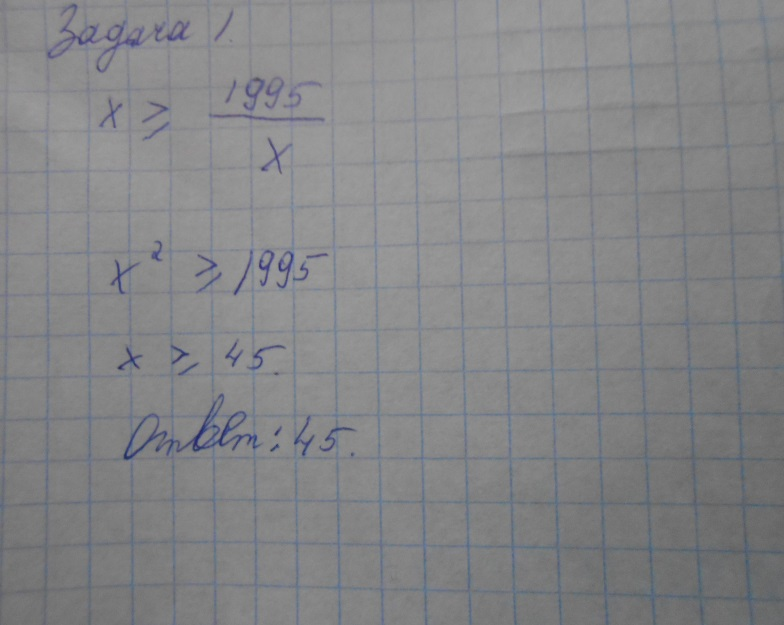 Задача 1.
x ≥ 1995
x
x² ≥ 1995
x ≥ 45.
Ответ: 45.